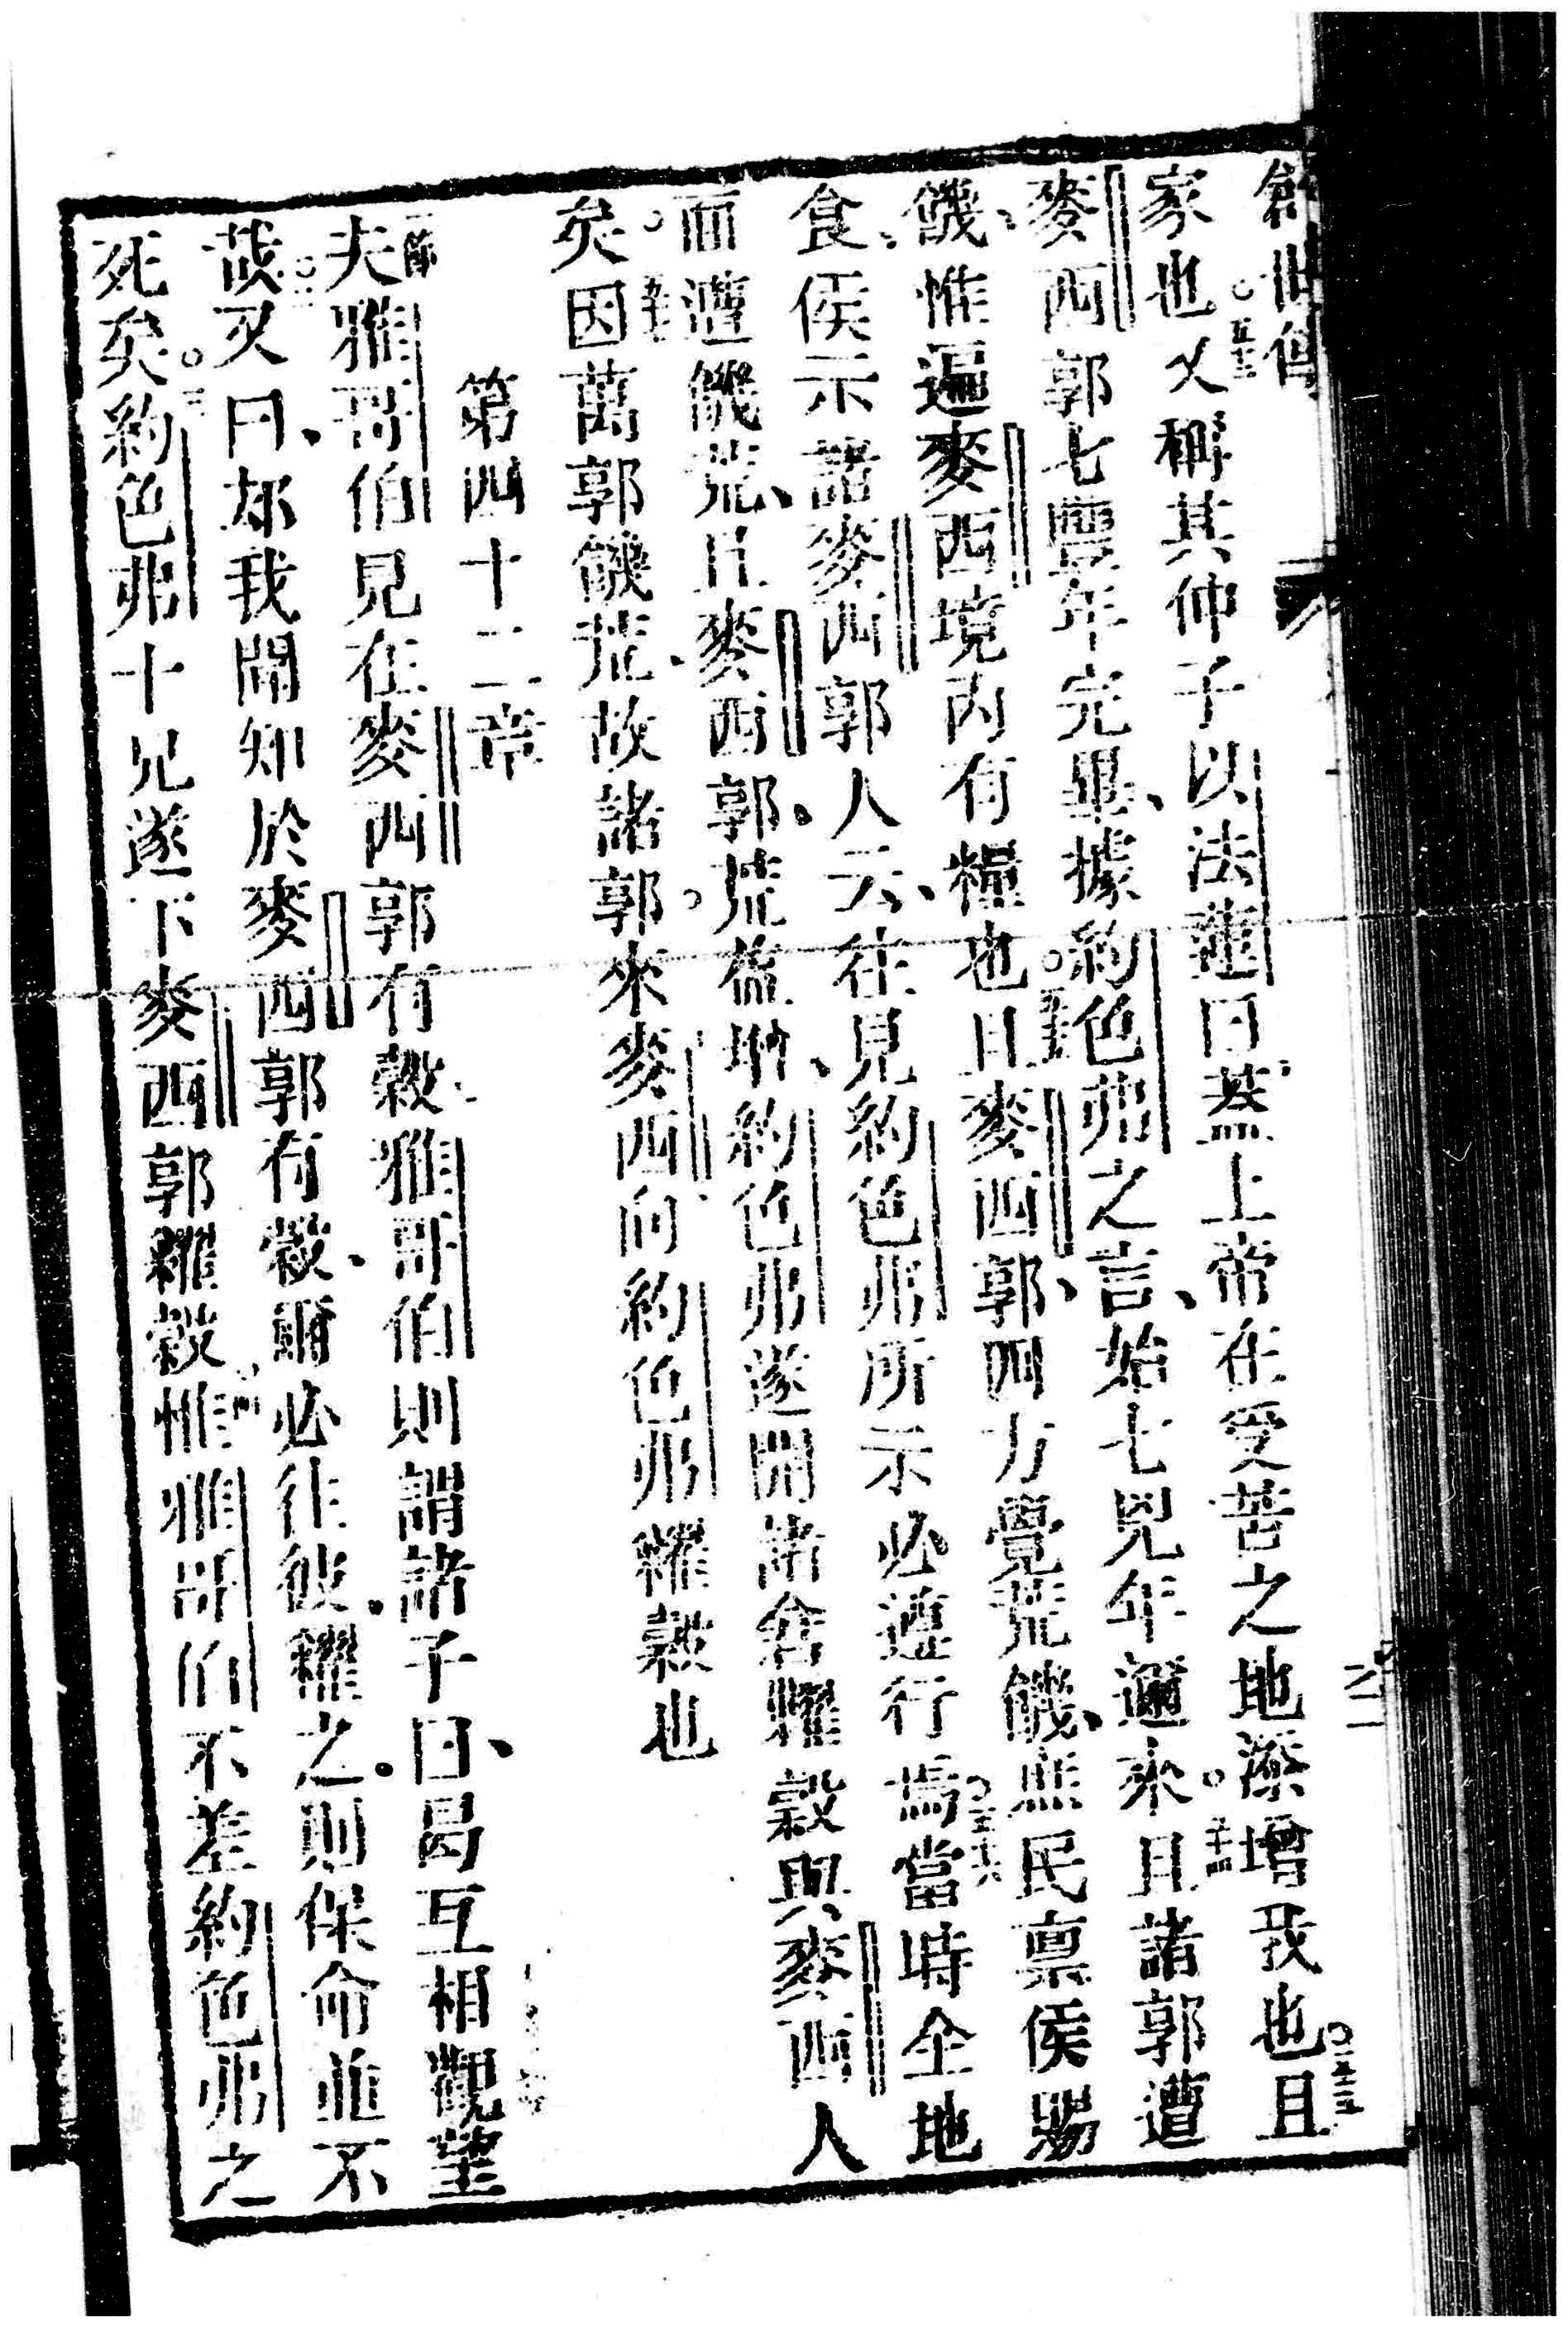 創世傳
家也○五十二又稱其仲子以法蓮曰蓋上帝在受苦之地滋增我也○五十三且
麥西郭七豐年完畢、據約色弗之言、始七兇年邇來。五十四且諸郭遭
饑、惟遍麥西境內有糧也○五十五且麥西郭、四方覺荒饑、焦民稟侯賜
食、侯示諸麥西郭人云、往見約色弗所示必遵行焉○五十六當時全地
而遭饑荒、且麥西郭、荒益增、約色弗遂開諸倉糶穀與麥西人
矣○五十七因萬郭饑荒、故諸郭。來麥西、向約色弗糴穀也
第四十二章
一節夫雅哥伯見在麥西郭有穀、雅哥伯則謂諸子曰、曷互相觀望
哉○二又曰、却我聞知於麥西郭有穀、爾必往彼、糴之。則保命並不
死矣○三約色弗十兄遂下麥西郭糴穀○四惟雅哥伯不差約色弗之